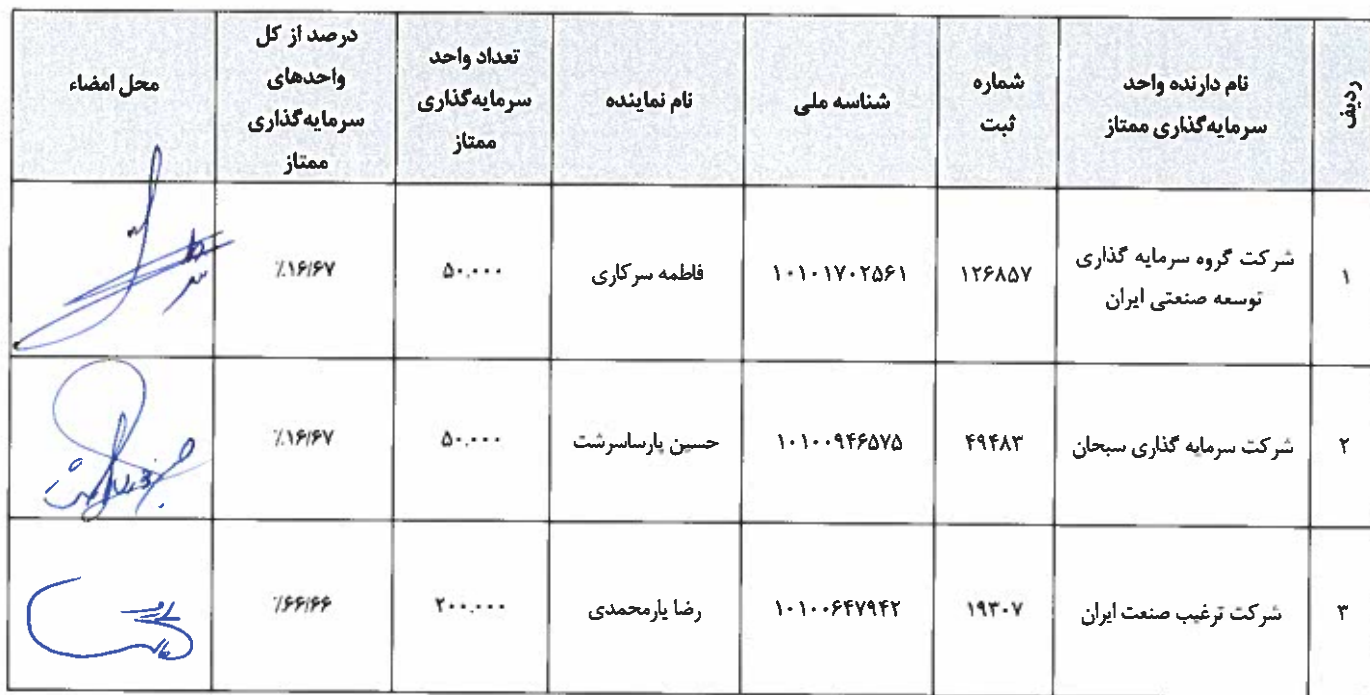 ردیف
نام دارنده واحد
سرمایه‌گذاری ممتاز
شماره
ثبت
شناسه ملی
نام نماینده
تعداد واحد
سرمایه‌گذاری
ممتاز
درصد از کل
واحدهای
سرمایه‌گذاری
ممتاز
محل امضاء
۱
شرکت گروه سرمایه گذاری
توسعه صنعتی ایران
۱۲۶۸۵۷
۱۰۱۰۱۷۰۲۵۶۱
فاطمه سرکاری
۵۰.۰۰۰
٪۱۶/۶۷
۲
شرکت سرمایه گذاری سبحان
۴۹۴۸۳
۱۰۱۰۰۹۴۶۵۷۵
حسین پارساسرشت
۵۰.۰۰۰
٪۱۶/۶۷
۳
شرکت ترغیب صنعت ایران
۱۹۳۰۷
۱۰۱۰۰۶۴۷۹۴۲
رضا یارمحمدی
۲۰۰.۰۰۰
٪۶۶/۶۶